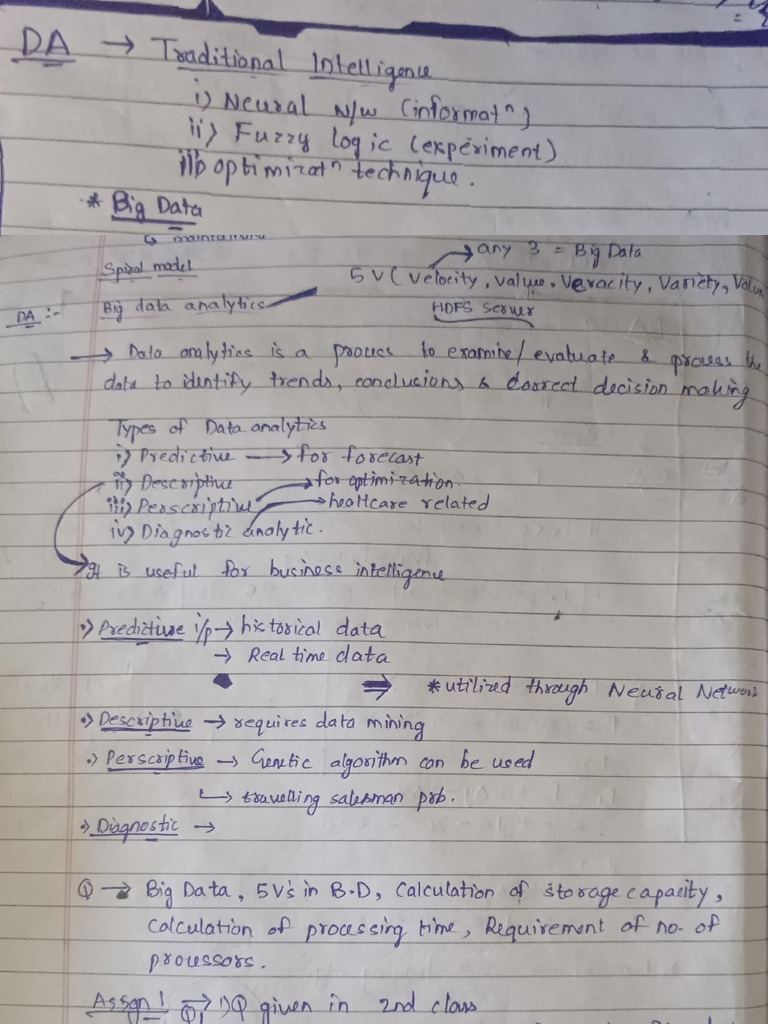 DA → Traditional Intelligence
i) Neural N/w (informatⁿ)
ii) Fuzzy logic (experiment)
iii) optimizatⁿ technique.
* Big Data
Spiral model
→ any 3 = Big Data
5V (Velocity, value, Veracity, Variety, Volum
DA :- Big data analytics
HDFS server
→ Data analytics is a process to examine/evaluate & process the
data to identify trends, conclusions & correct decision making
Types of Data analytics
i) Predictive → for forecast
ii) Descriptive → for optimization
iii) Perscriptive → healtcare related
iv) Diagnostic analytic.
→ It is useful for business intelligence
•) Predictive i/p → historical data
→ Real time data
⇒ * utilized through Neural Network
•) Descriptive → requires data mining
•) Perscriptive → Genetic algorithm can be used
↳ travelling salesman prb.
•) Diagnostic →
Q → Big Data, 5V's in B.D, Calculation of storage capacity,
Calculation of processing time, Requirement of no. of
processors.
Assgn 1 → Q1 1) Q given in 2nd class